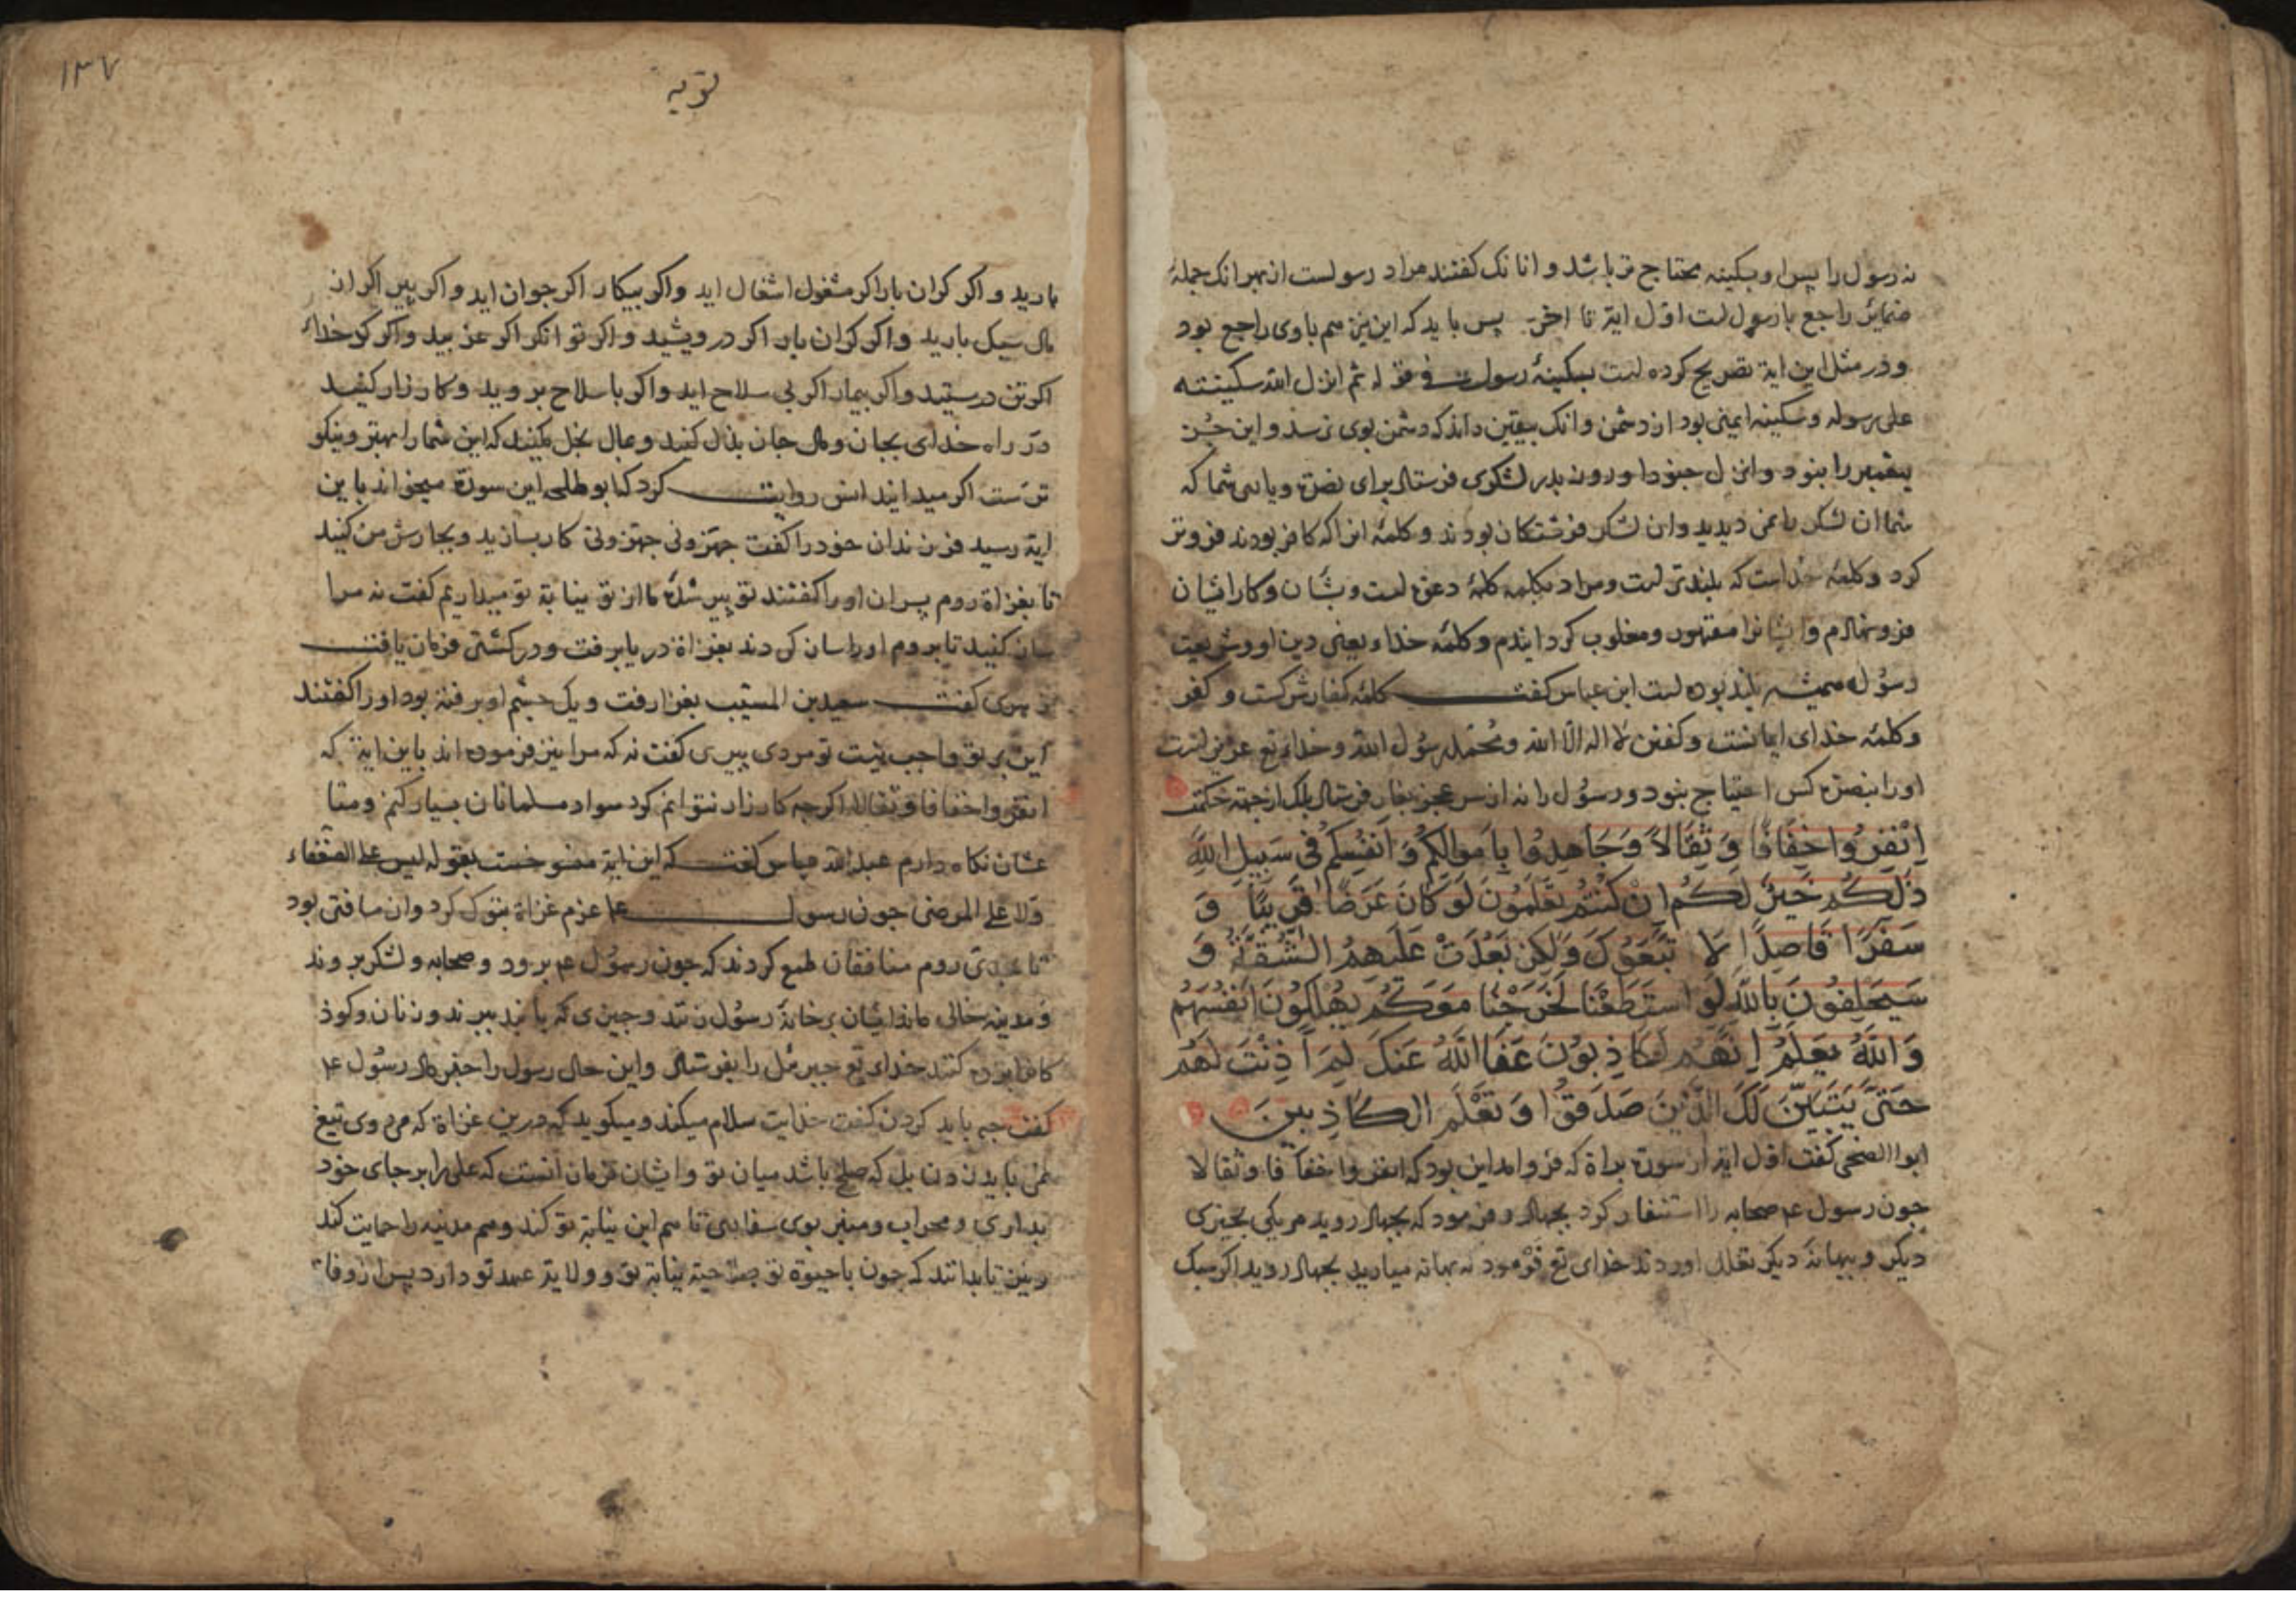 نه رسول را پس او بسکینه محتاج تر باشد و انانک کفتند مراد رسولست از بهر انک جملهٔ
ضمائر راجع با رسول است اوّل ایة تا اخر پس باید که این نیز هم باوی راجع بود
و در مثل این ایة تصریح کرده است بسکینهٔ رسول فی قوله ثم انزل الله سکینته
علی رسوله و سکینه ایمنی بود از دشمن و انک بیقین داند که دشمن بوی نرسد و این جُز
پیغمبر را نبود و انزل جنودا و روز بدر لشکری فرستاد برای نصرة و یاری شما که
شما ان لشکر را نمی دیدید و ان لشکر فرشتکان بودند و کلمهٔ انرا که کافر بودند فروتر
کرد و کلمهٔ خداست که بلندتر است و مراد بکلمه کلمهٔ دعوة است و شان و کار ایشان
فرو نهادم و ایشانرا مقهور و مغلوب کردایندم و کلمهٔ خداء یعنی دین او و شریعت
رسُول همیشه بلند بوده است ابن عباس کفت کلمهٔ کفار شرکست و کفر
و کلمهٔ خدای ایمانست و کفتن لا اله الا الله و محمّد رسُول الله و خدای تع عزیز است
او را بنصرة کس احتیاج نبود و رسُول را نه از سر عجز بغار فرستاد بلک از جهة حکمت
اِنْفِرُوا خِفَافًا وَ ثِقَالاً وَجَاهِدُوا بِاَمْوَالِکُمْ وَ اَنْفُسِکُمْ فِی سَبِیلِ اللهِ
ذٰلِکُمْ خَیْرٌ لَکُمْ اِنْ کُنْتُمْ تَعْلَمُونَ لَوْ کَانَ عَرَضًا قَرِیبًا وَ
سَفَرًا قَاصِدًا لَا تَّبَعُوکَ وَلٰکِنْ بَعُدَتْ عَلَیْهِمُ الشُّقَّةُ وَ
سَیَحْلِفُونَ بِاللهِ لَوِ اسْتَطَعْنَا لَخَرَجْنَا مَعَکُمْ یُهْلِکُونَ اَنْفُسَهُمْ
وَ اللهُ یَعْلَمُ اِنَّهُمْ لَکَاذِبُونَ عَفَا اللهُ عَنْکَ لِمَ اَذِنْتَ لَهُمْ
حَتّٰی یَتَبَیَّنَ لَکَ الَّذِینَ صَدَقُوا وَ تَعْلَمَ الْکَاذِبِینَ
ابوا الضحی کفت اول ایة از سورة براة که فرو امد این بود که انفروا خفافا و ثقالا
جون رسول عم صحابه را استنفار کرد بجهاد و فرمود که بجهاد روید هر یکی بجیزی
دیکر و ببهانهٔ دیکر تعلل اوردند خدای تع فرمود نه بهانه میارید بجهاد روید اکر سبک
۱۳۷
توبه
بارید و اکر کران بار اکر مشغول اشغال اید و اکر بیکار اکر جوان اید و اکر پیر اکر از
مال سبک بارید و اکر کران بار اکر درویشید و اکر توانکر اکر عزبید و اکر کدخداء
اکر تن درستید و اکر بیمار اکر بی سلاح اید و اکر با سلاح بروید و کارزار کنید
در راه خدای بجان و مال جان بذل کنید و بمال بخل مکنید که این شما را بهتر و نیکو
ترست اکر میدانید انس روایت کرد که ابو طلحه این سورة میخواند باین
ایة رسید فرزندان خود را کفت جهّزونی جهّزونی کار بسازید و بجارش من کنید
تا بغزاة روم پسران او را کفتند تو پیر شدهٔ ما از تو نیابة تو میداریم کفت نه مرا
ساز کنید تا بروم او را ساز کردند بغزاة دریا برفت و در کشتی فرمان یافت
زهری کفت سعید بن المسیّب بغزا رفت و یک چشم او برفته بود او را کفتند
این بر تو واجب نیست تو مردی پیری کفت نه که مرا نیز فرموده اند باین ایة که
انفروا خفافا و ثقالا اکرچه کارزار نتوانم کرد سواد مسلمانان بسیار کنم و متا
عشان نکاه دارم عبدالله عباس کفت که این ایة منسوخست بقوله لیس علی الضعفاء
ولا علی المرضی جون رسول عم عزم غزاة تبوک کرد و ان مسافتی بود
تا بحدی روم منافقان طمع کردند که جون رسُول عم برود و صحابه و لشکر بروند
و مدینه خالی ماند ایشان بر خانهٔ رسُول زنند و چیزی که یابند ببرند و زنان و کوذ
کانرا برده کنند خدای تع جبرئل را بفرستاد و این حال رسول را خبر داد رسُول عم
کفت چه باید کردن کفت خدایت سلام میکند و میکوید که درین غزاة که مروی تیغ
نمی باید زدن بل که صلح باشد میان تو و ایشان فرمان انست که علی را بر جای خود
بداری و محراب و منبر بوی سفاری تا هم این نیابة تو کند و هم مدینه را حمایت کند
و نیز تا بدانند که جون با حیوة تو صلاحیة نیابة تو و ولایة عهد تو دارد پس از وفاة